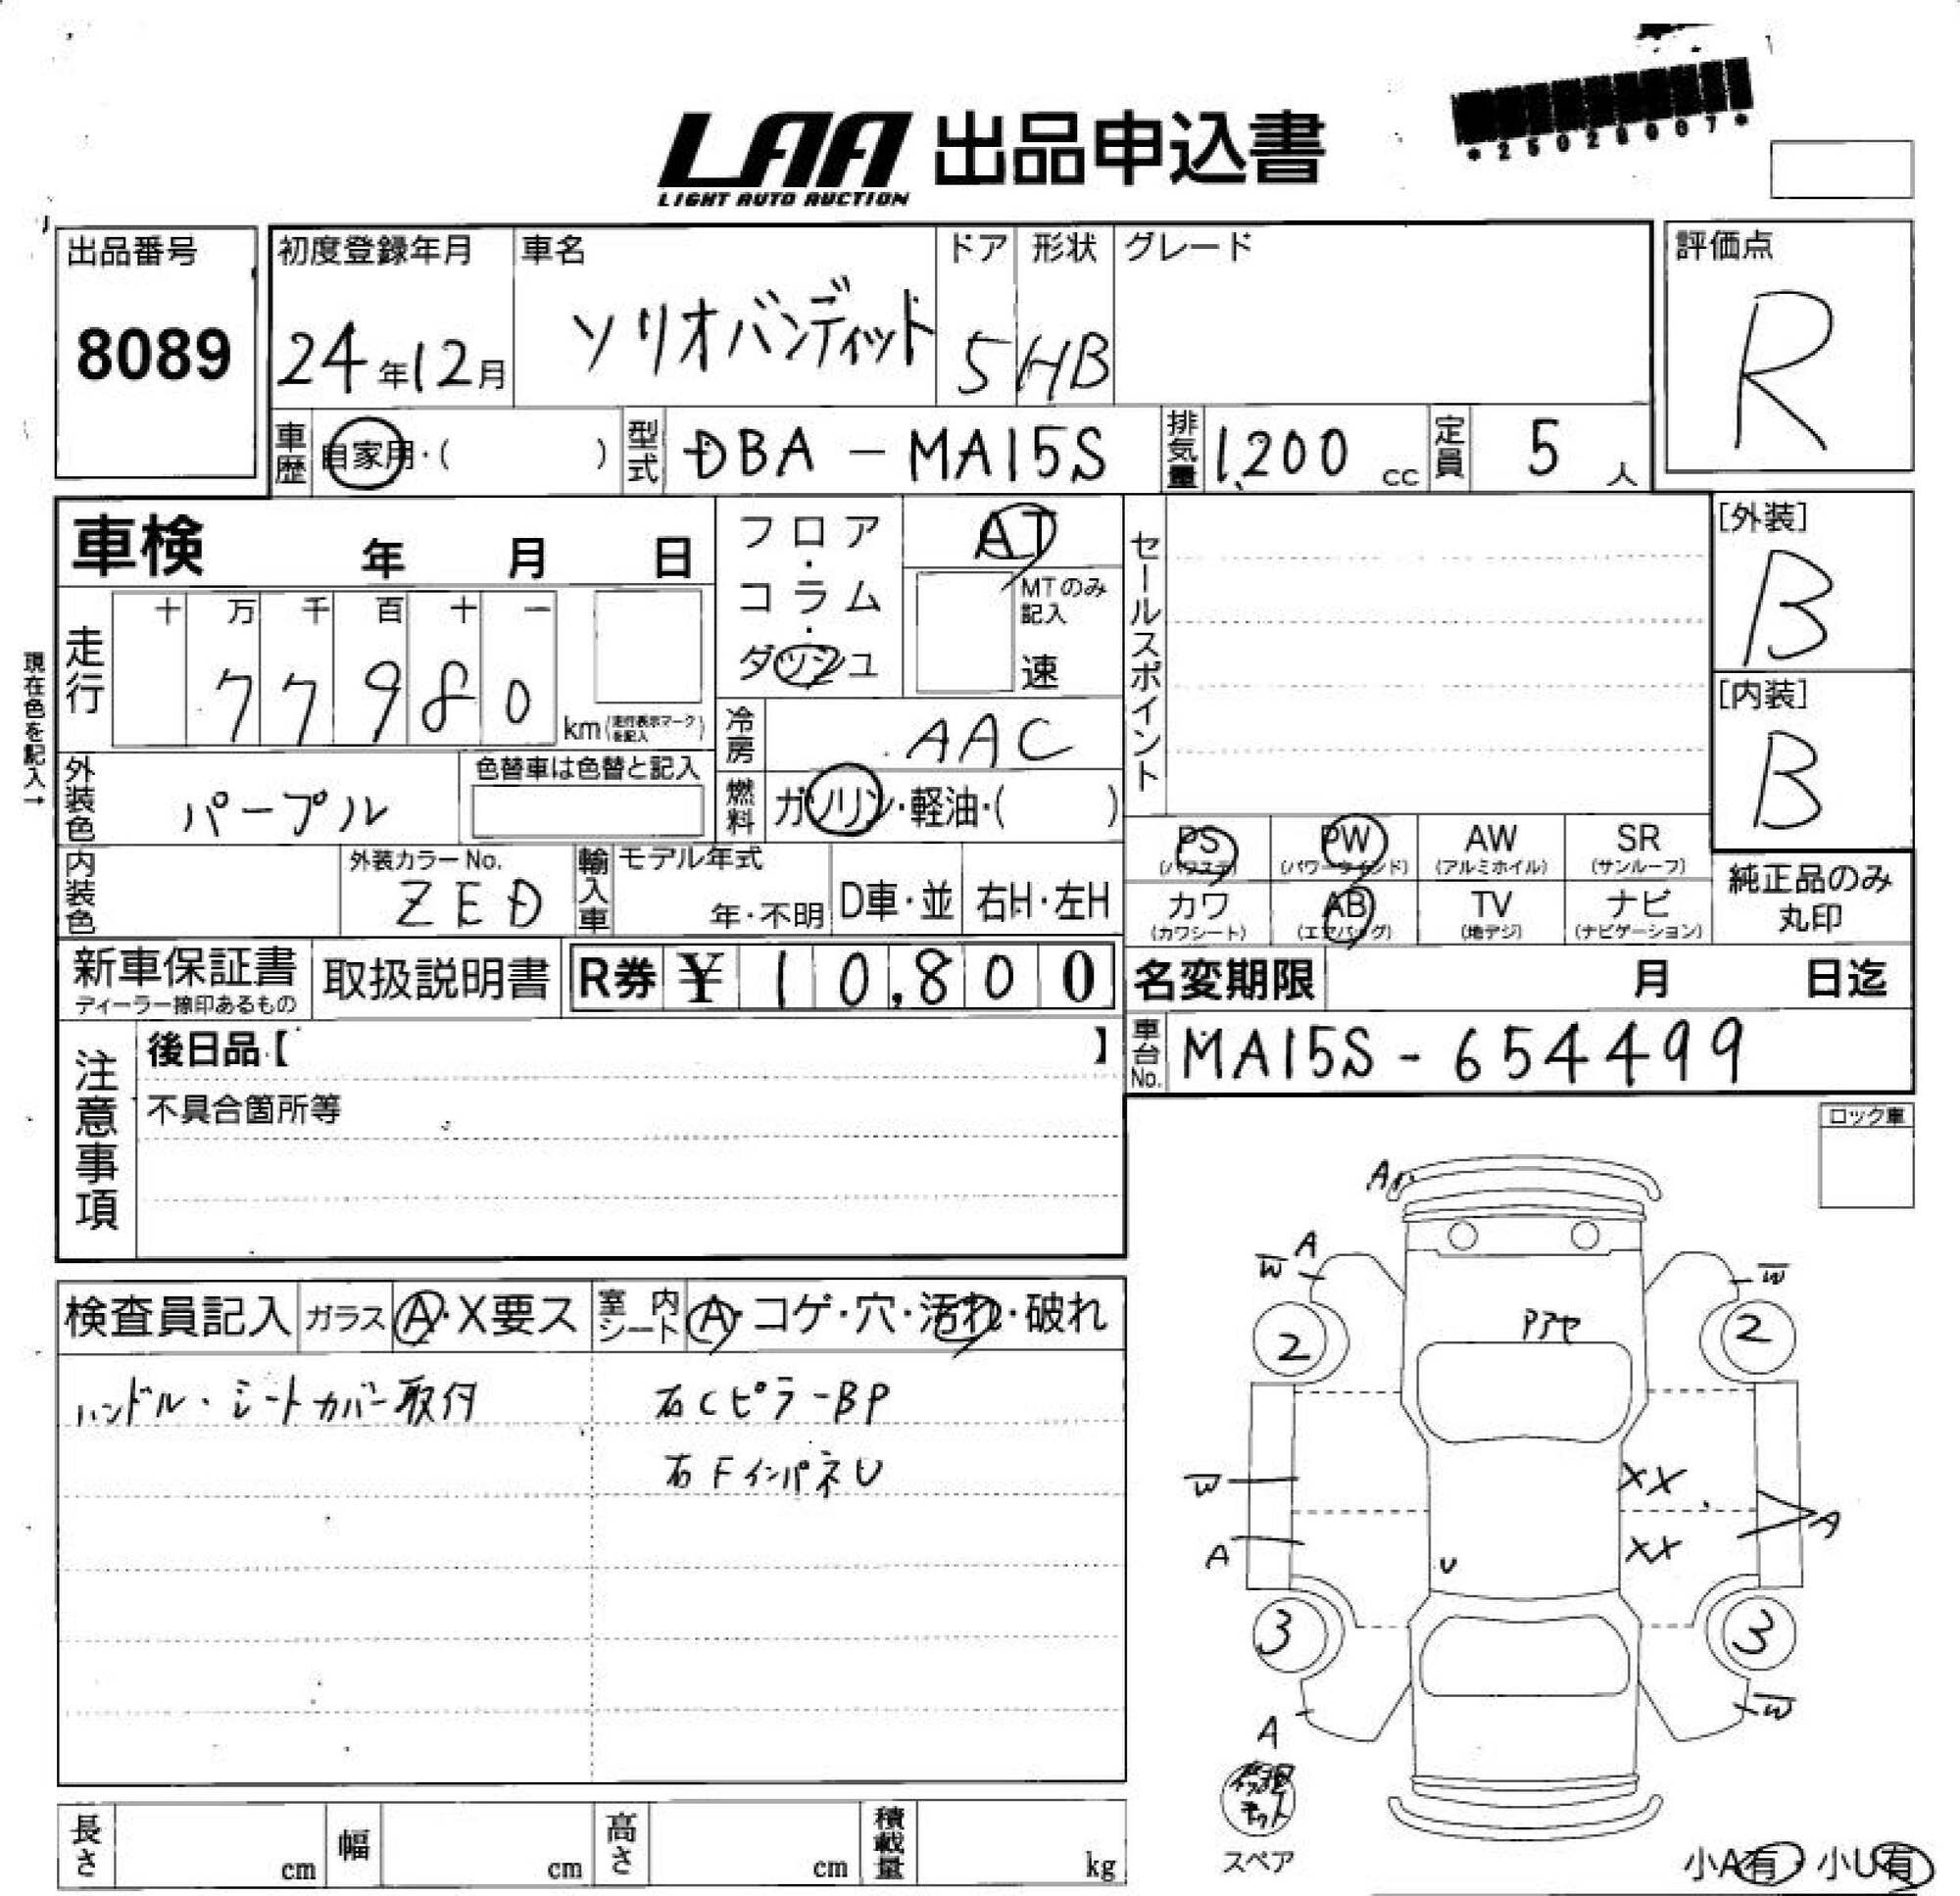 *25028007*
LAA 出品申込書
LIGHT AUTO AUCTION
出品番号 初度登録年月 車名 ドア 形状 グレード 評価点
8089 24年12月 ソリオバンディット 5 HB R
車歴 自家用・( ) 型式 DBA-MA15S 排気量 1,200 cc 定員 5 人
車検 年 月 日 フロア・コラム・ダッシュ AT セールスポイント [外装]
B
MTのみ記入
速
現在色を記入→
走行 十 万 千 百 十 一
7 7 9 8 0 km (走行表示マークを記入)
[内装]
B
冷房 AAC
外装色 パープル 色替車は色替と記入 燃料 ガソリン・軽油・( )
PS PW AW SR
(パワステ) (パワーウインド) (アルミホイル) (サンルーフ)
内装色 外装カラーNo. 輸入車 モデル年式 純正品のみ
ZED 年・不明 D車・並 右H・左H カワ AB TV ナビ 丸印
(カワシート) (エアバッグ) (地デジ) (ナビゲーション)
新車保証書 取扱説明書 R券 ¥ 10,800 名変期限 月 日迄
ディーラー捺印あるもの
注意事項 後日品【 】 車台No. MA15S-654499
不具合箇所等
ロック車
検査員記入 ガラス A・X要ス 室内シート A・コゲ・穴・汚れ・破れ
ハンドル・シートカバー取付 右CピラーBP
右FインパネU
A
A
W W
アアセ
2 2
W XX
A
A XX
U
3 3
W
A
スペア
小A有・小U有
長さ cm 幅 cm 高さ cm 積載量 kg